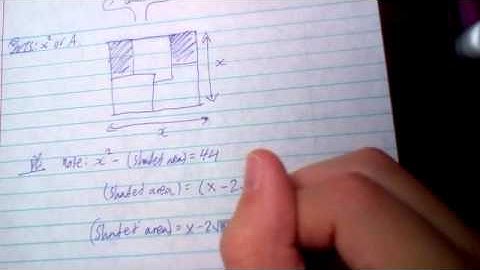 x² or A
x
x
Note: x² - (Shaded area) = 44
(Shaded area) = (x - 2
(Shaded area) = x - 2√